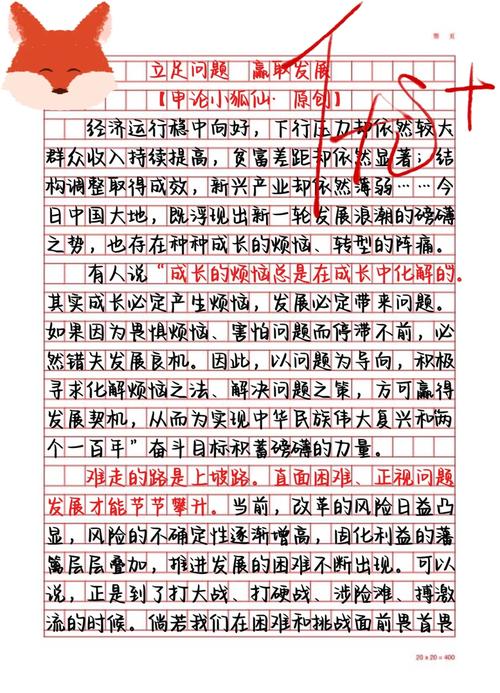 第 页
立足问题 赢取发展
【申论小狐仙· 原创】
经济运行稳中向好，下行压力却依然较大
群众收入持续提高，贫富差距却依然显著；结
构调整取得成效，新兴产业却依然薄弱……今
日中国大地，既浮现出新一轮发展浪潮的磅礴
之势，也存在种种成长的烦恼、转型的阵痛。
有人说“成长的烦恼总是在成长中化解的。
其实成长必定产生烦恼，发展必定带来问题。
如果因为畏惧烦恼、害怕问题而停滞不前，必
然错失发展良机。因此，以问题为导向，积极
寻求化解烦恼之法、解决问题之策，方可赢得
发展契机，从而为实现中华民族伟大复兴和两
个一百年”奋斗目标积蓄磅礴的力量。
难走的路是上坡路。直面困难、正视问题
发展才能节节攀升。当前，改革的风险日益凸
显，风险的不确定性逐渐增高，固化利益的藩
篱层层叠加，推进发展的困难不断出现。可以
说，正是到了打大战、打硬战、涉险滩、搏激
流的时候。倘若我们在困难和挑战面前畏首畏
20 x 20 = 400